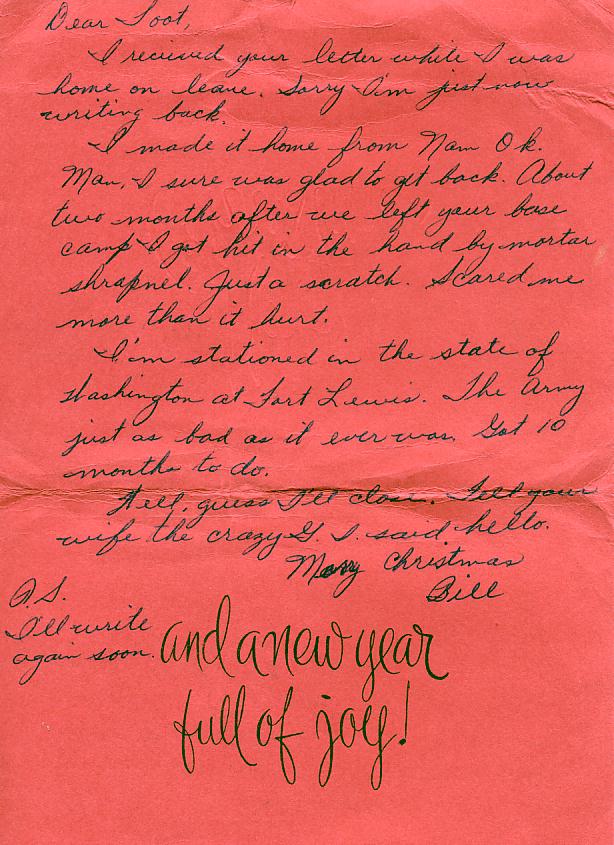 Dear Toot,
I recieved your letter while I was
home on leave. Sorry I'm just now
writing back.
I made it home from Nam Ok.
Man, I sure was glad to get back. About
two months after we left your base
camp I got hit in the hand by mortar
shrapnel. Just a scratch. Scared me
more than it hurt.
I'm stationed in the state of
Washington at Fort Lewis. The Army
just as bad as it ever was. Got 10
months to do.
Well, guess I'll close. Tell your
wife the crazy G. I. said hello.
Merry Christmas
Bill
P.S.
I'll write
again soon.
and a new year
full of joy!